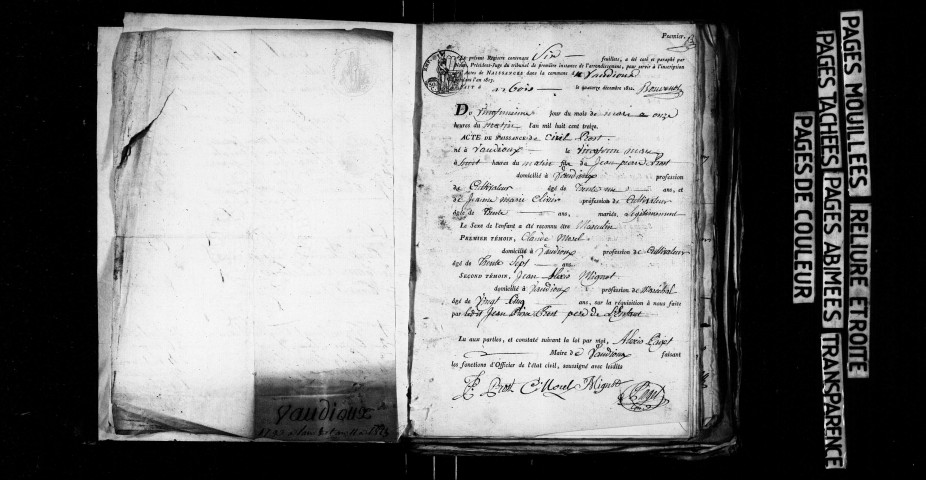 Premier.
Le présent Registre contenant Six feuillets, a été coté et paraphé par
Président-Juge du tribunal de première instance de l'arrondissement, pour servir à l'inscription
Actes de NAISSANCES dans la commune de Vaudioux
pendant l'an 1813.
FAIT à arbois le quatorze décembre 1812.
Du vingtunieme jour du mois de mars a onze
heures du matin l'an mil huit cent treize.
ACTE DE NAISSANCE de Prost
né à Vaudioux le mars
à huit heures du matin fils de Jean pierre Prost
domicilié à Vaudioux profession
de Cultivateur âgé de trente ans, et
de Jeanne marie Clivier profession de Cultivateur
âgée de trente ans, mariés Légitimement
Le Sexe de l'enfant a été reconnu être Masculin
PREMIER TÉMOIN, Claude Morel
domicilié à Vaudioux profession de Cultivateur
âgé de trente Sept ans
SECOND TÉMOIN, Jean Alexis Mignot
domicilié à Vaudioux profession de Maréchal
âgé de vingt Cinq ans, sur la réquisition à nous faite
par ledit Jean Pierre Prost pere de L'Enfant
Lu aux parties, et constaté suivant la loi par moi, Alexis Paget
Maire de Vaudioux faisant
les fonctions d'Officier de l'état civil, soussigné avec lesdits
Prost C Morel Mignot Paget
Vaudioux
PAGES MOUILLEES RELIURE ETROITE
PAGES TACHEES PAGES ABIMEES TRANSPARENCE
PAGES DE COULEUR